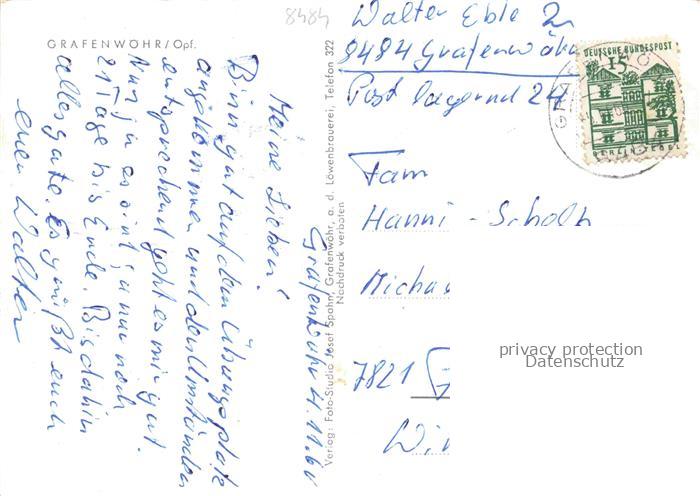 8484
GRAFENWÖHR/Opf.
Grafenwöhr 4.11.60
Meine Lieben!
Bin gut auf dem Übungsplatz
angekommen und den Umständen
entsprechend geht es mir gut.
Nur ja es sind ja nur noch
21 Tage bis Ende. Bis dahin
alles gute. Es grüßt euch
euer Walter
Verlag: Foto-Studio Josef Spahn, Grafenwöhr, a. d. Löwenbrauerei, Telefon 322
Nachdruck verboten
Walter Eble
8484 Grafenwöhr
Post lagernd 24
DEUTSCHE BUNDESPOST
15
BERLIN-TEGEL
Fam
Hanni - Scholz
7821
privacy protection
Datenschutz